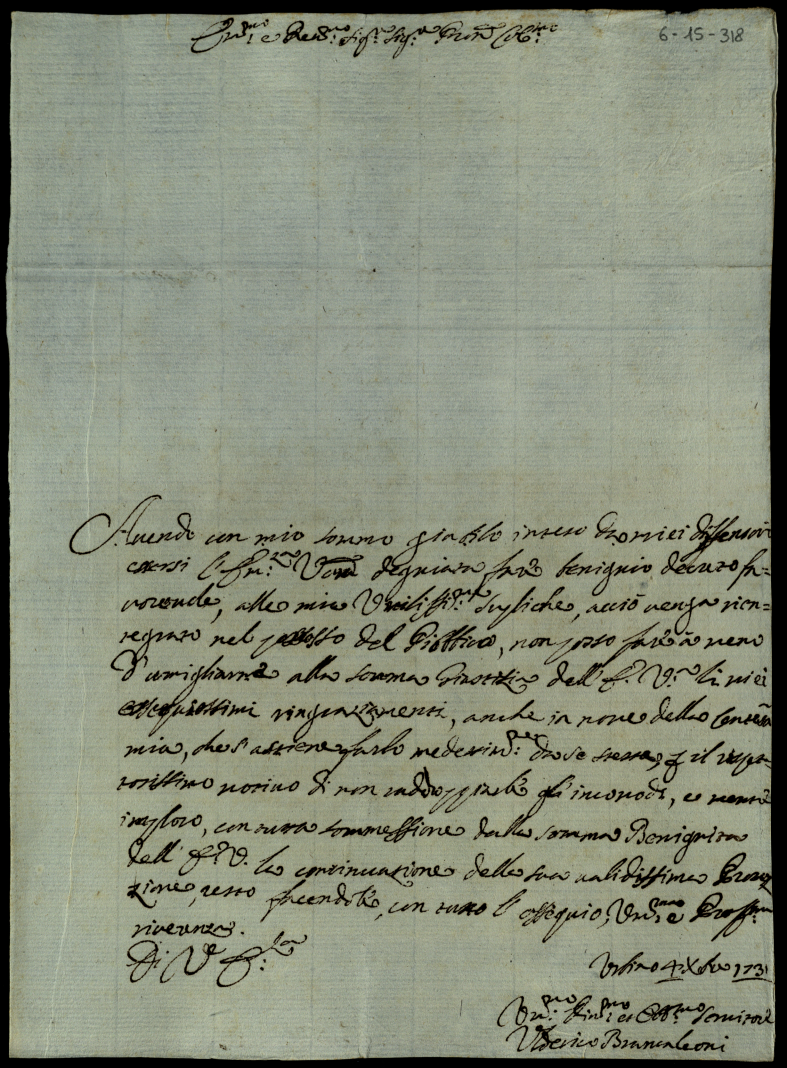 Em.mo e Rev.mo Sig.r Sig.r Pron.e Col.mo
6-15-318
Avendo con mio sommo giubilo inteso da miei difensori
essersi l'Em.za V.ra degniata fare benignio decreto fa=
vorevole, alle mie Umilissi.me Supliche, acciò venga rien=
tegrato nel possesso del, non posso fare à meno
d'umigliarne alla somma Giustizia dell'E. V.ra li miei
ossequiosissimi ringraziamenti, anche in nome della
mia, che s'astiene farlo medesima.te da se stessa p il rispet=
tosissimo motivo di non raddoppiarle gl'incomodi, e mentre
imploro, con tutta sommessione dalla somma Benignità
dell'E. V. la continuazione della sua validissima Protez
zione, resto facendole, con tutto l'ossequio, Um.ma e Proff.ma
riverenza.
Di V.ra Em.za
Urbino 4 Xbre 1731
Um.mo Dev.mo et Obb.mo Servitore
Uderico Brancaleoni